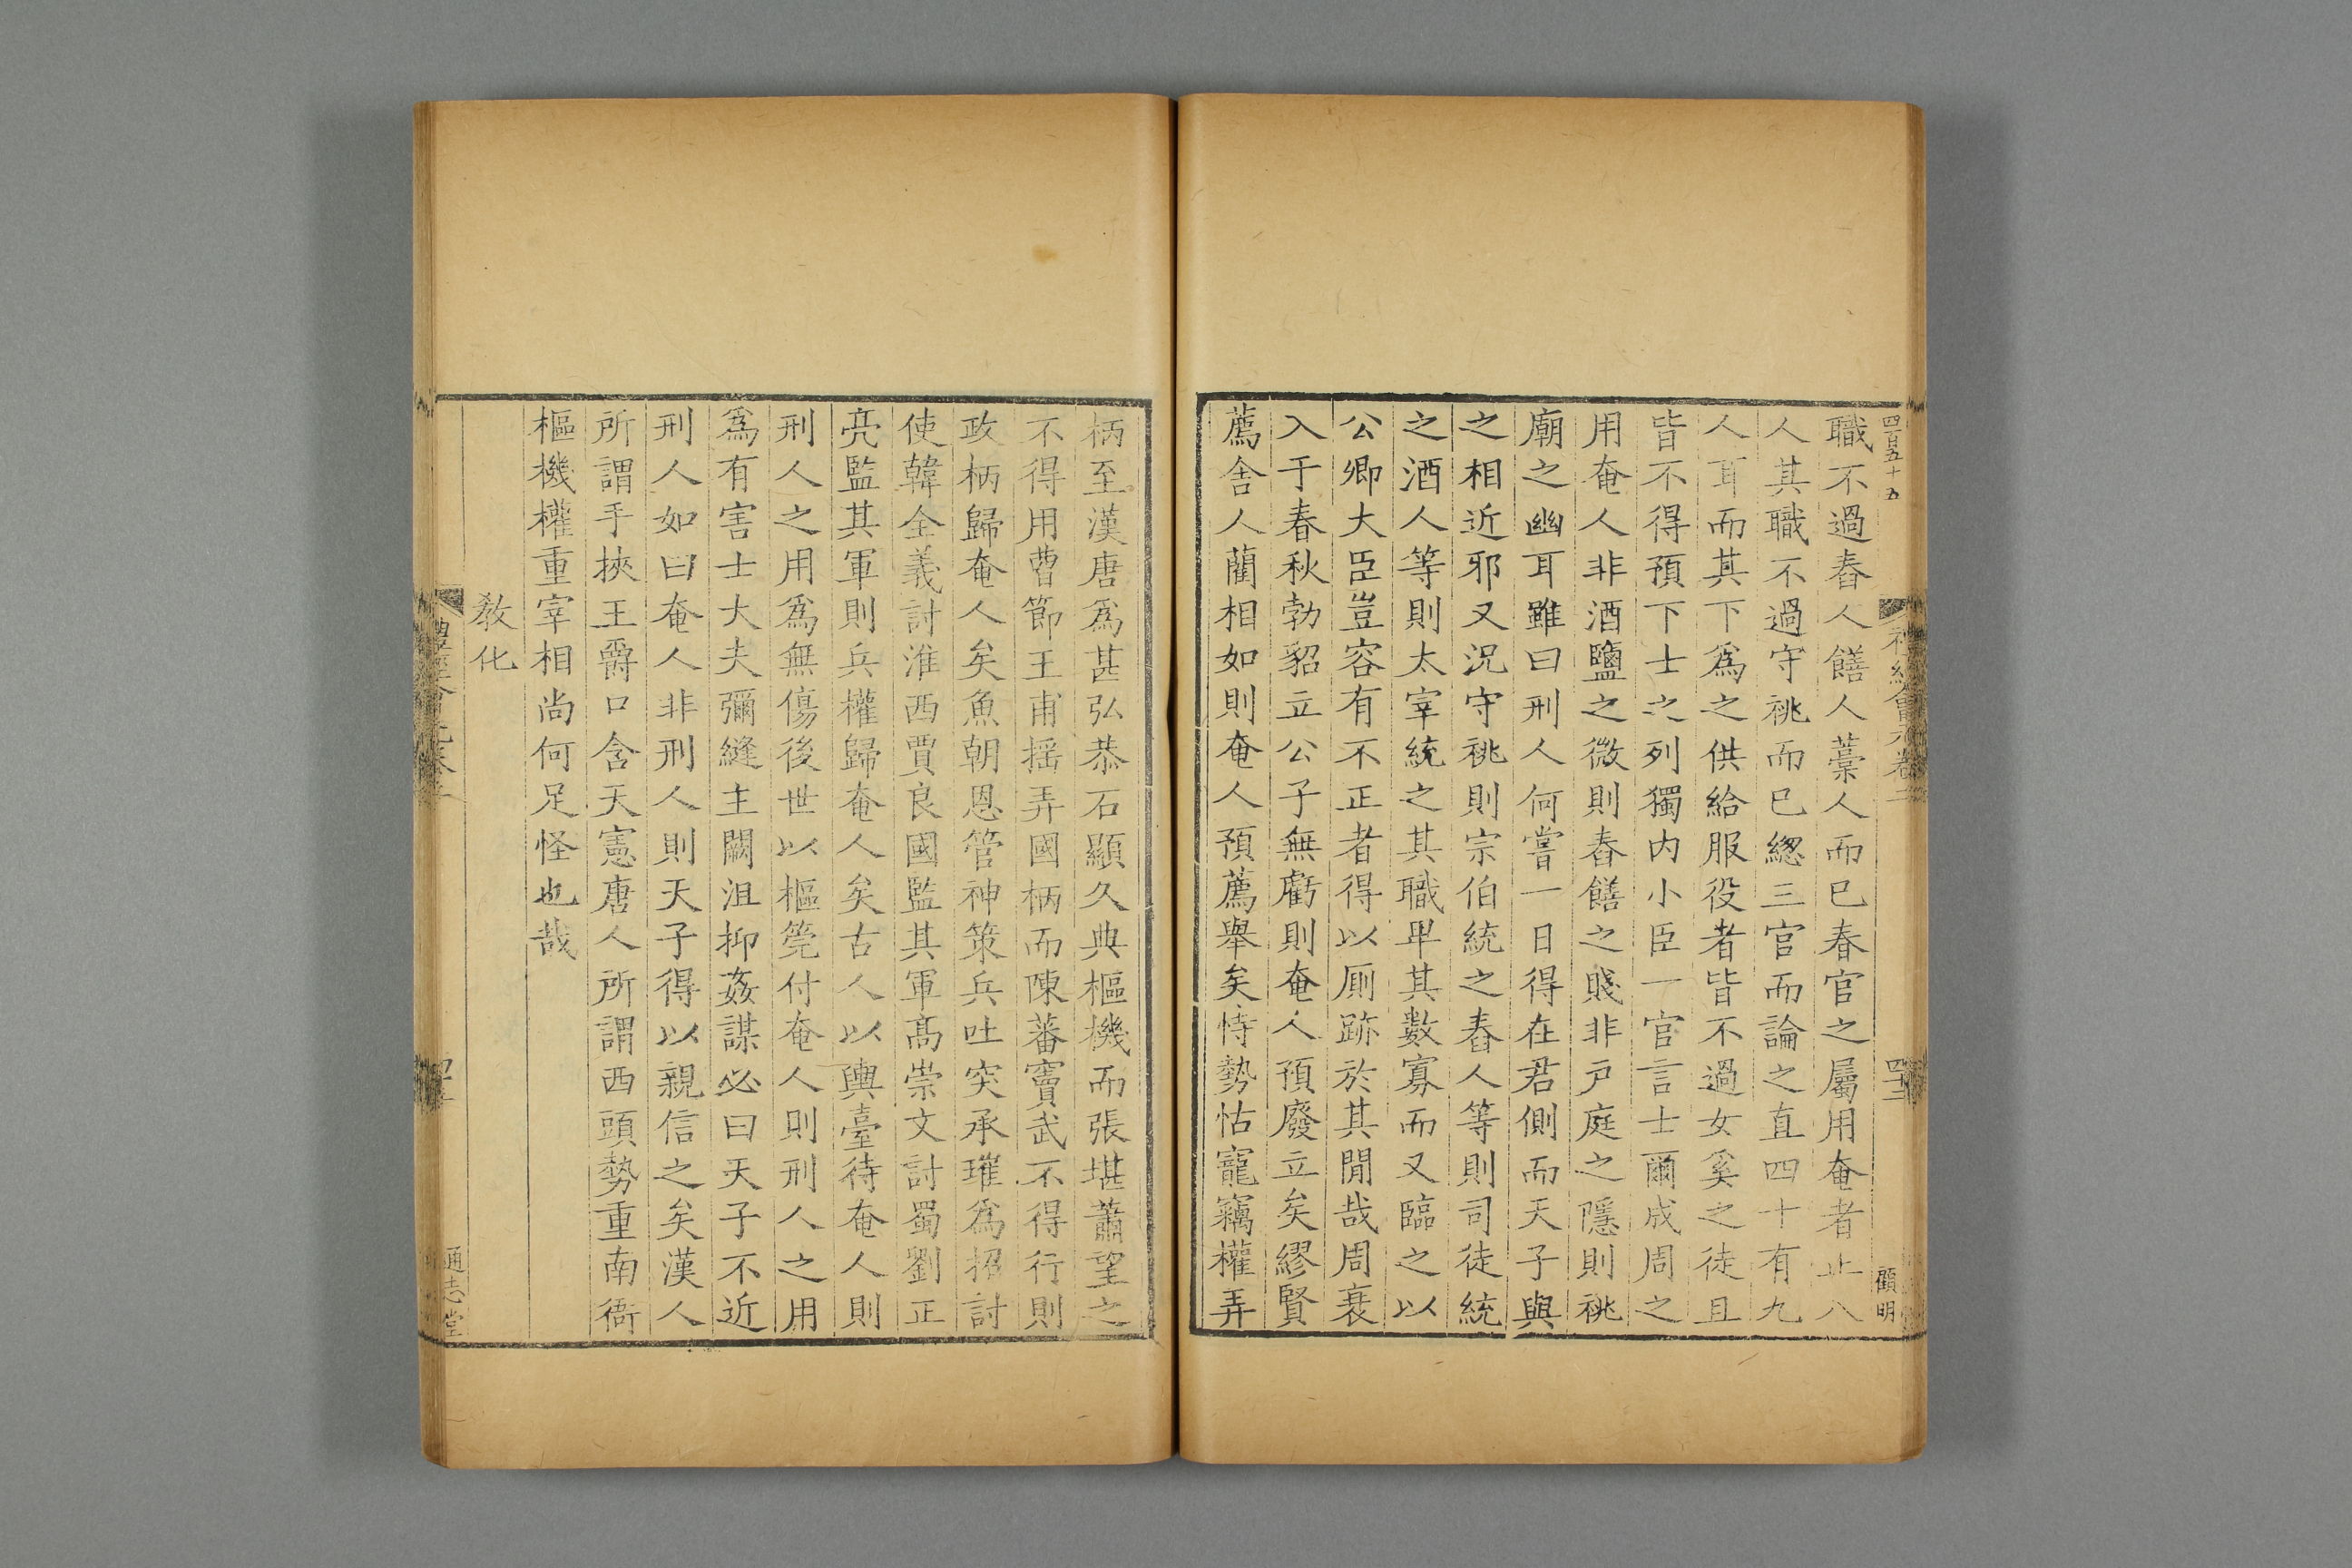 四百五十五
職不過舂人饎人藁人而已春官之屬用奄者止八
人其職不過守祧而已緫三官而論之直四十有九
人耳而其下爲之供給服役者皆不過女奚之徒且
皆不得預下士之列獨内小臣一官言士爾成周之
用奄人非酒鹽之微則舂饎之賤非戸庭之隱則祧
廟之幽耳雖曰刑人何嘗一日得在君側而天子與
之相近邪又況守祧則宗伯統之舂人等則司徒統
之酒人等則太宰統之其職卑其數寡而又臨之以
公卿大臣豈容有不正者得以厠跡於其閒哉周衰
入于春秋勃貂立公子無虧則奄人預廢立矣繆賢
薦舍人藺相如則奄人預薦舉矣恃勢怙寵竊權弄
禮經會元卷二
顧明
柄至漢唐爲甚弘恭石顯久典樞機而張堪蕭望之
不得用曹節王甫揺弄國柄而陳蕃竇武不得行則
政柄歸奄人矣魚朝恩管神策兵吐突承璀爲招討
使韓全義討淮西賈良國監其軍高崇文討蜀劉正
亮監其軍則兵權歸奄人矣古人以輿臺待奄人則
刑人之用爲無傷後世以樞筦付奄人則刑人之用
爲有害士大夫彌縫主闕沮抑姦謀必曰天子不近
刑人如曰奄人非刑人則天子得以親信之矣漢人
所謂手挾王爵口含天憲唐人所謂西頭勢重南衙
樞機權重宰相尚何足怪也哉
教化
通志堂